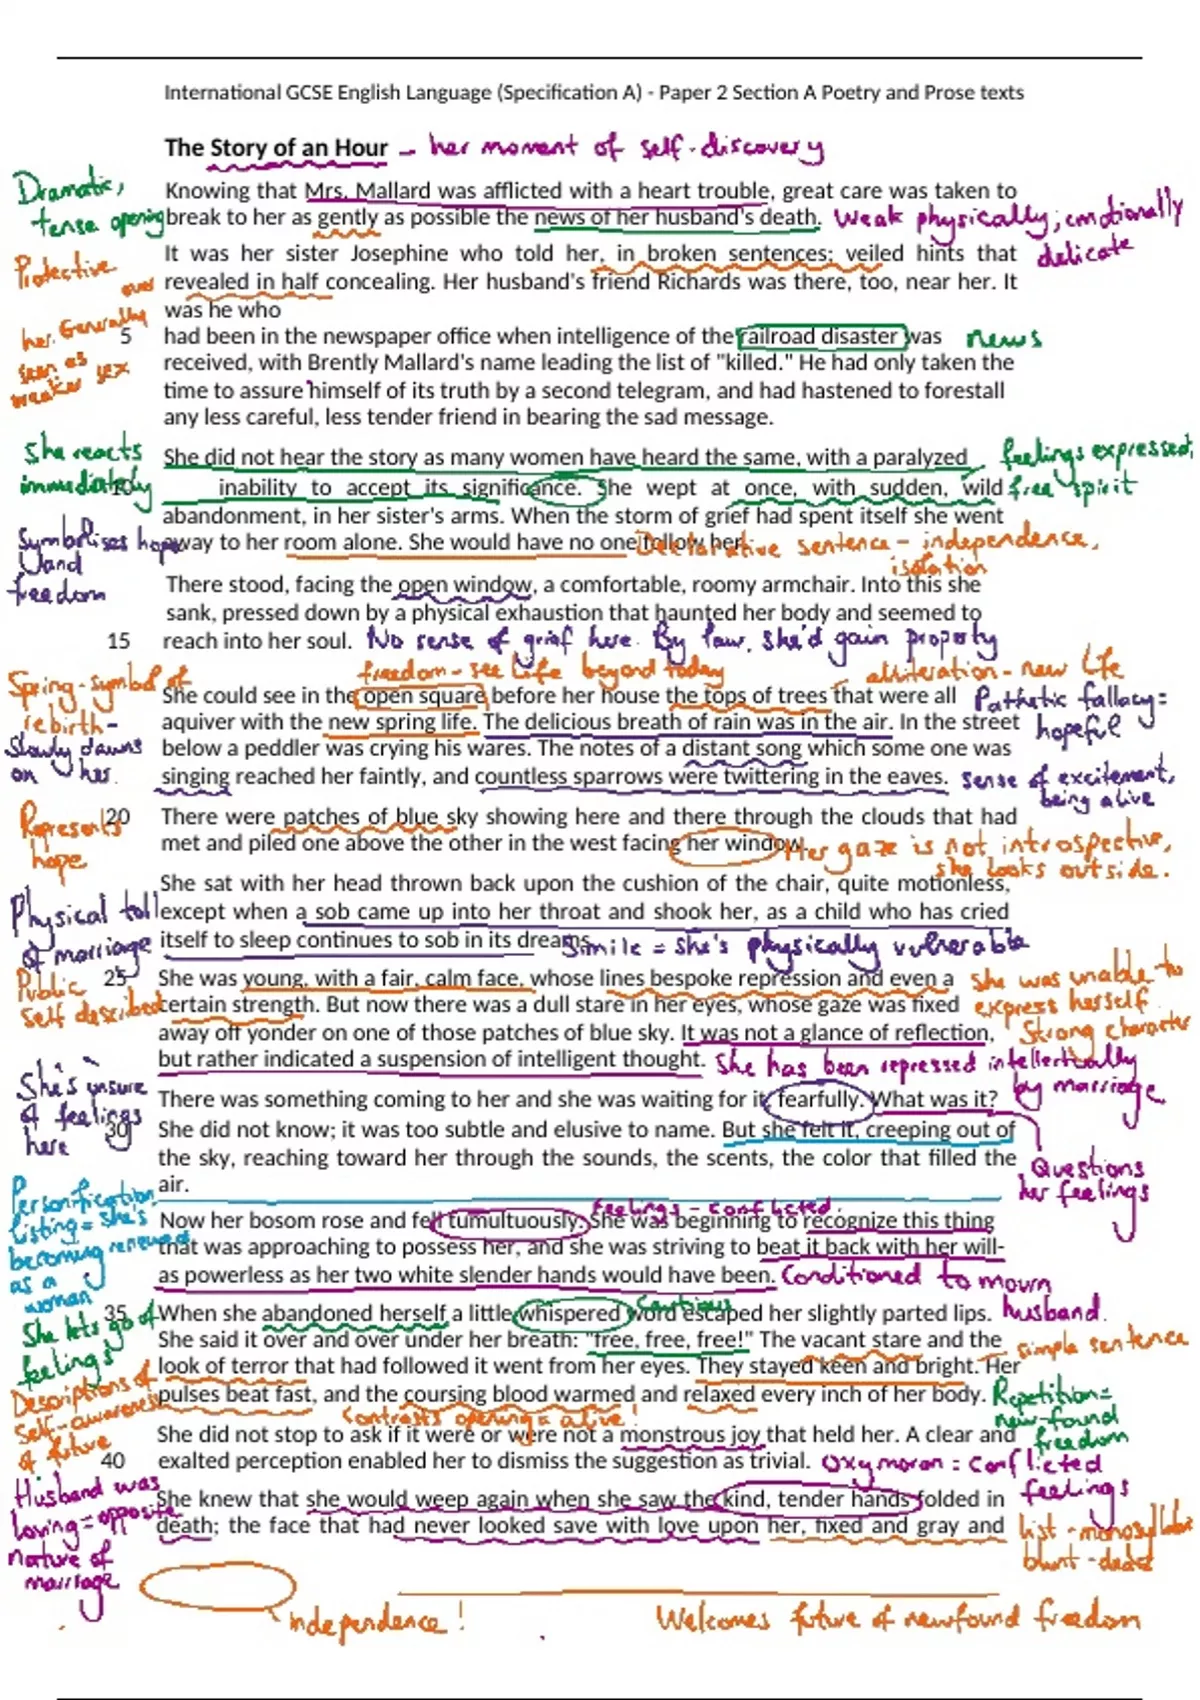 International GCSE English Language (Specification A) - Paper 2 Section A Poetry and Prose texts
The Story of an Hour - her moment of self-discovery
Dramatic,
tense opening
Knowing that Mrs. Mallard was afflicted with a heart trouble, great care was taken to
break to her as gently as possible the news of her husband's death. Weak physically; emotionally
delicate
Protective
over
her. Generally
seen as
weaker sex
It was her sister Josephine who told her, in broken sentences; veiled hints that
revealed in half concealing. Her husband's friend Richards was there, too, near her. It
was he who
5 had been in the newspaper office when intelligence of the railroad disaster was news
received, with Brently Mallard's name leading the list of "killed." He had only taken the
time to assure himself of its truth by a second telegram, and had hastened to forestall
any less careful, less tender friend in bearing the sad message.
She reacts
immediately
She did not hear the story as many women have heard the same, with a paralyzed
feelings expressed,
free spirit
inability to accept its significance. She wept at once, with sudden, wild
abandonment, in her sister's arms. When the storm of grief had spent itself she went
away to her room alone. She would have no one follow her.
Declarative sentence - independence,
isolation
Symbolises hope
and
freedom
There stood, facing the open window, a comfortable, roomy armchair. Into this she
sank, pressed down by a physical exhaustion that haunted her body and seemed to
15 reach into her soul. No sense of grief here. By law, she'd gain property
freedom - see life beyond today
alliteration - new life
Spring - symbol of
rebirth -
Slowly dawns
on her.
She could see in the open square before her house the tops of trees that were all
Pathetic fallacy =
hopeful
aquiver with the new spring life. The delicious breath of rain was in the air. In the street
below a peddler was crying his wares. The notes of a distant song which some one was
singing reached her faintly, and countless sparrows were twittering in the eaves.
sense of excitement,
being alive
Represents
hope
20 There were patches of blue sky showing here and there through the clouds that had
met and piled one above the other in the west facing her window.
Her gaze is not introspective,
she looks outside.
She sat with her head thrown back upon the cushion of the chair, quite motionless,
except when a sob came up into her throat and shook her, as a child who has cried
itself to sleep continues to sob in its dreams.
Simile = she's physically vulnerable
Physical toll
of marriage
Public
self described
25 She was young, with a fair, calm face, whose lines bespoke repression and even a
certain strength. But now there was a dull stare in her eyes, whose gaze was fixed
away off yonder on one of those patches of blue sky. It was not a glance of reflection,
but rather indicated a suspension of intelligent thought.
she was unable to
express herself
Strong character
She has been repressed intellectually
by marriage
She's unsure
of feelings
here
There was something coming to her and she was waiting for it, fearfully. What was it?
30 She did not know; it was too subtle and elusive to name. But she felt it, creeping out of
the sky, reaching toward her through the sounds, the scents, the color that filled the
air.
Questions
her feelings
Personification,
listing = she's
becoming renewed
as a
woman
Feelings - conflicted
Now her bosom rose and fell tumultuously. She was beginning to recognize this thing
that was approaching to possess her, and she was striving to beat it back with her will-
as powerless as her two white slender hands would have been. Conditioned to mourn
husband.
35 When she abandoned herself a little whispered word escaped her slightly parted lips.
Cautious
She lets go of
feelings
She said it over and over under her breath: "free, free, free!" The vacant stare and the
simple sentence
look of terror that had followed it went from her eyes. They stayed keen and bright. Her
pulses beat fast, and the coursing blood warmed and relaxed every inch of her body.
Repetition =
new-found
freedom
Contrasts opening = alive!
Descriptions of
self-awareness
of future
She did not stop to ask if it were or were not a monstrous joy that held her. A clear and
40 exalted perception enabled her to dismiss the suggestion as trivial. Oxymoron = conflicted
feelings
Husband was
loving = opposite
nature of
marriage
She knew that she would weep again when she saw the kind, tender hands folded in
death; the face that had never looked save with love upon her, fixed and gray and
list - monosyllabic
blunt - dead
independence!
Welcomes future of newfound freedom